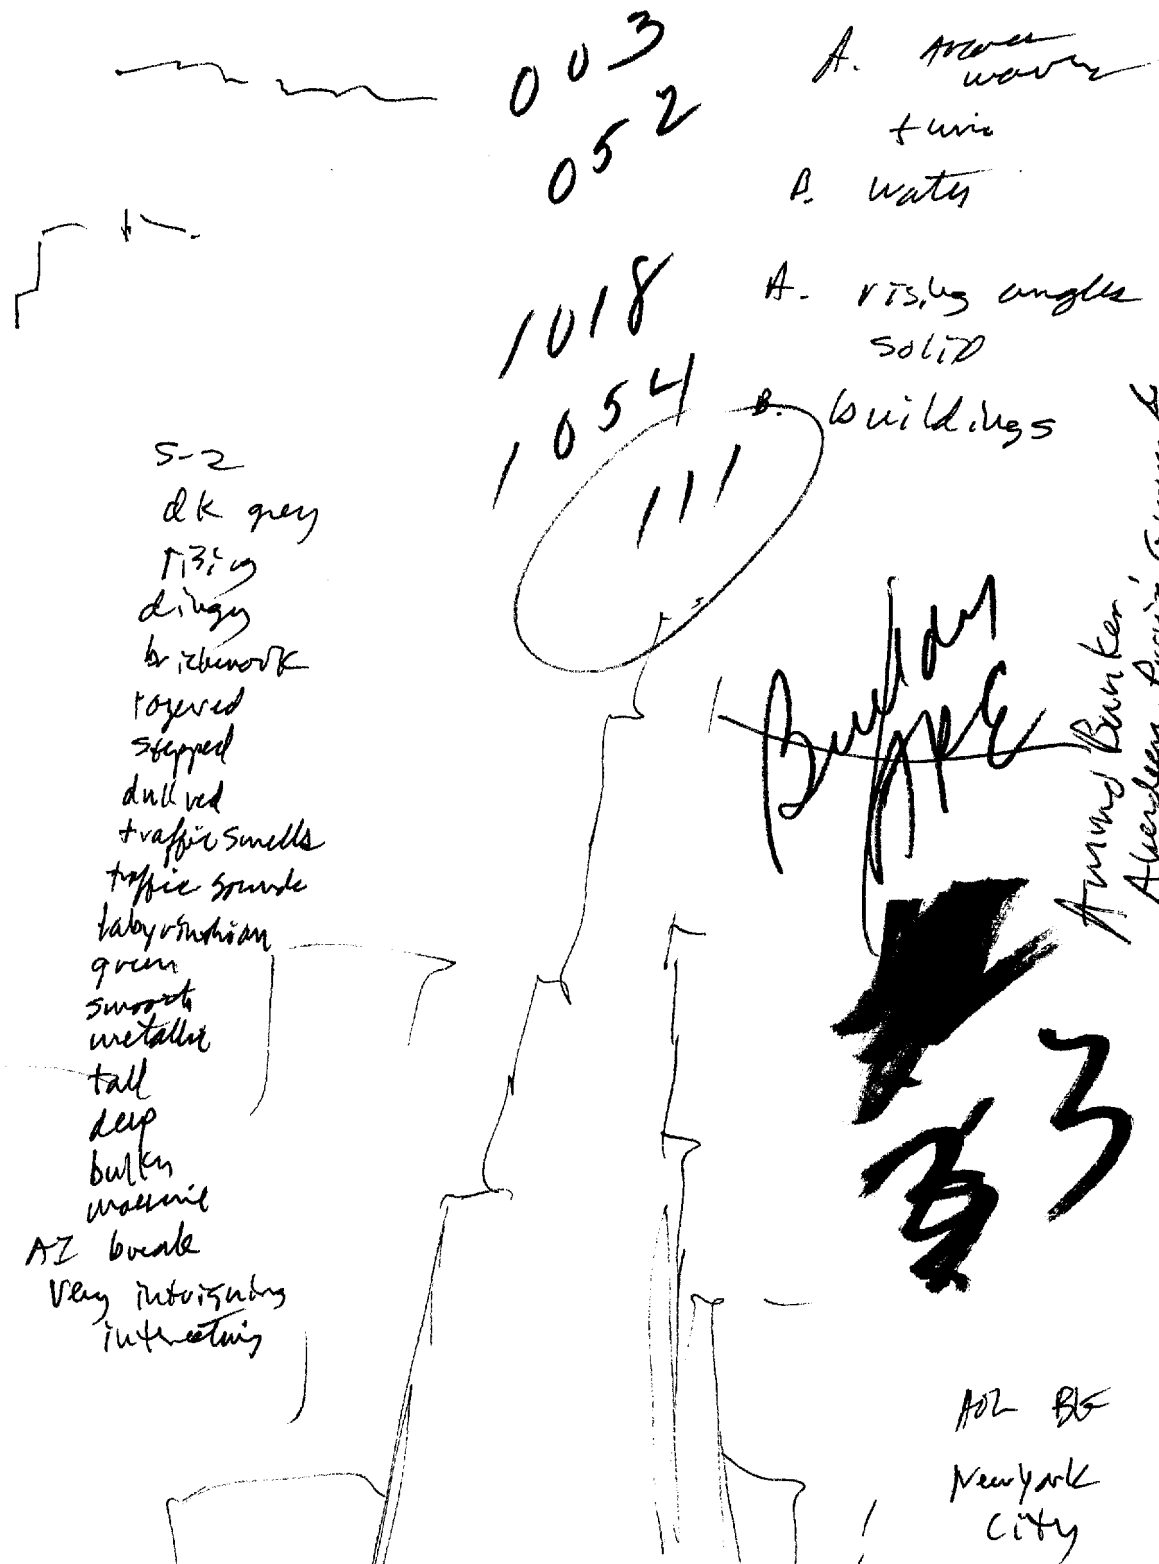 003
052
A. across
wavy
B. water
1018
1054
A. rising angles
solid
B. buildings
111
S-2
dk grey
rising
dingy
brickwork
stepped
dull red
traffic smells
traffic sounds
labyrinthian
green
smooth
metallic
tall
deep
bulky
massive
AI break
very intriguing
interesting
Ammo Bunker,
Aberdeen Proving
Building
3
AOL BK
New York
City